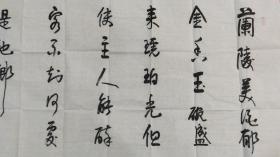 蘭陵美酒郁
金香玉碗盛
来琥珀光但
使主人能醉
客不知何處
是他鄉